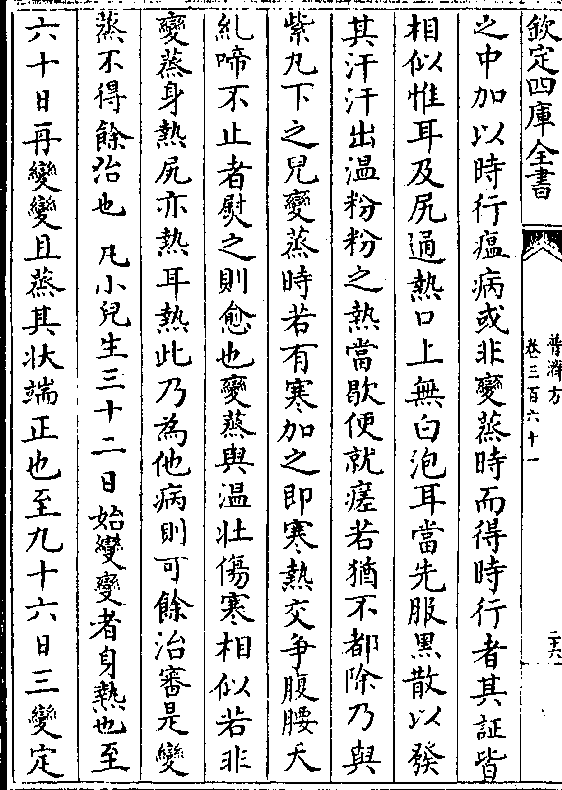 欽定四庫全書
普濟方
卷三百六十一
之中加以時行瘟病或非變蒸時而得時行者其証皆
相似惟耳及尻通熱口上無白泡耳當先服黒散以發
其汗汗出溫粉粉之熱當歇便就瘥若猶不都除乃與
紫丸下之兒變蒸時若有寒加之即寒熱交争腹腰夭
糺啼不止者熨之則愈也變蒸與溫壯傷寒相似若非
變蒸身熱尻亦熱耳熱此乃為他病則可餘治審是變
蒸不得餘治也 凡小兒生三十二日始變變者身熱也至
六十日再變變且蒸其状端正也至九十六日三變定